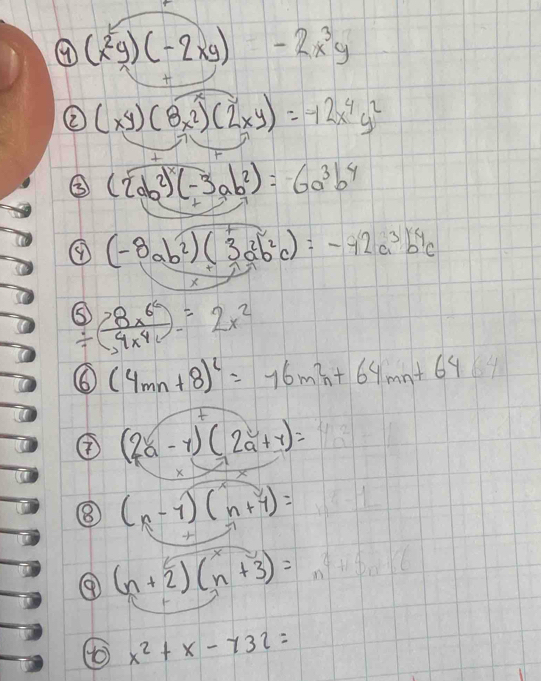 ① (x²y)(-2xy) -2x³y
② (xy)(8x²)(2xy) = -12x⁴y²
③ (2ab²)(-3ab²) = -6a³b⁴
④ (-8ab²)(3a²b²c) = -92a³b⁴c
⑤ ÷ 8x⁶/4x⁴ = 2x²
⑥ (4mn+8)² = 16m²n+64mn+64
⑦ (2a-1)(2a+1)=
⑧ (n-1)(n+1)=
⑨ (n+2)(n+3)=
⑩ x²+x-132=